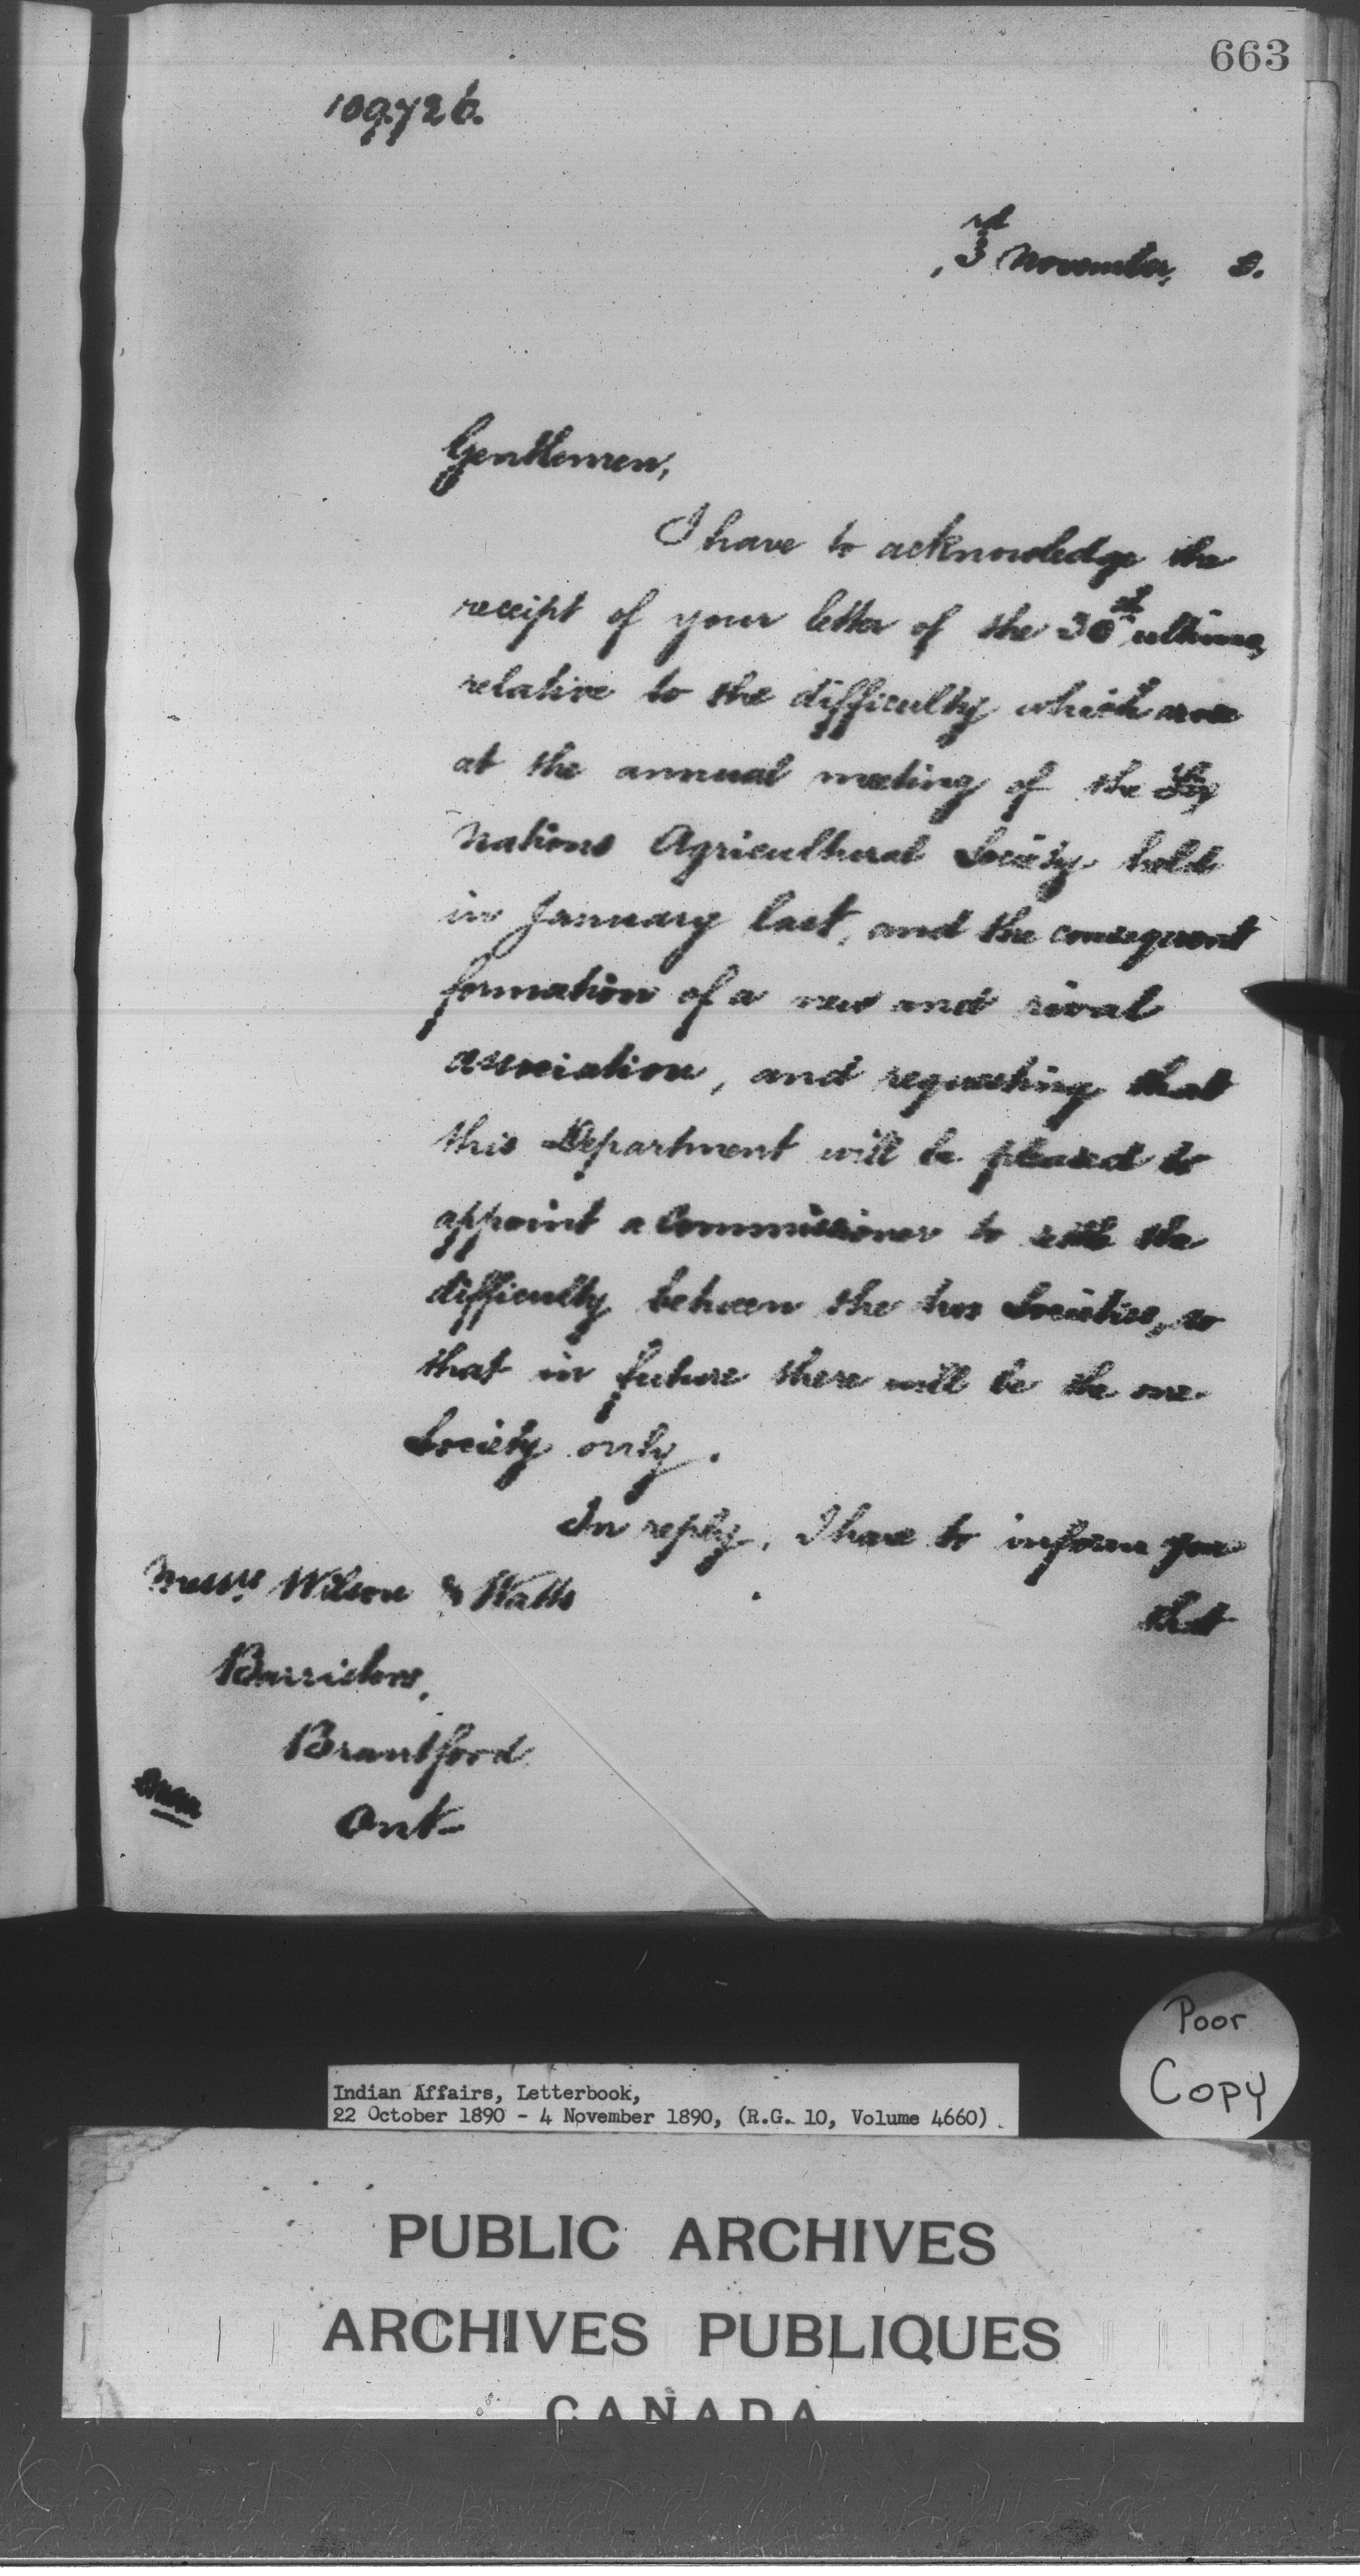 663
109.726.
3rd November, 0.
Gentlemen,
I have to acknowledge the
receipt of your letter of the 30th ultimo,
relative to the difficulty which arose
at the annual meeting of the Six
Nations Agricultural Society held
in January last, and the consequent
formation of a new and rival
association, and requesting that
this Department will be pleased to
appoint a Commissioner to settle the
difficulty between the two Societies, so
that in future there will be the one
Society only.
In reply, I have to inform you
that
Messrs. Wilson & Watts
Barristers,
Brantford
Ont-
Poor
Copy
Indian Affairs, Letterbook,
22 October 1890 - 4 November 1890, (R.G. 10, Volume 4660)
PUBLIC ARCHIVES
ARCHIVES PUBLIQUES
CANADA